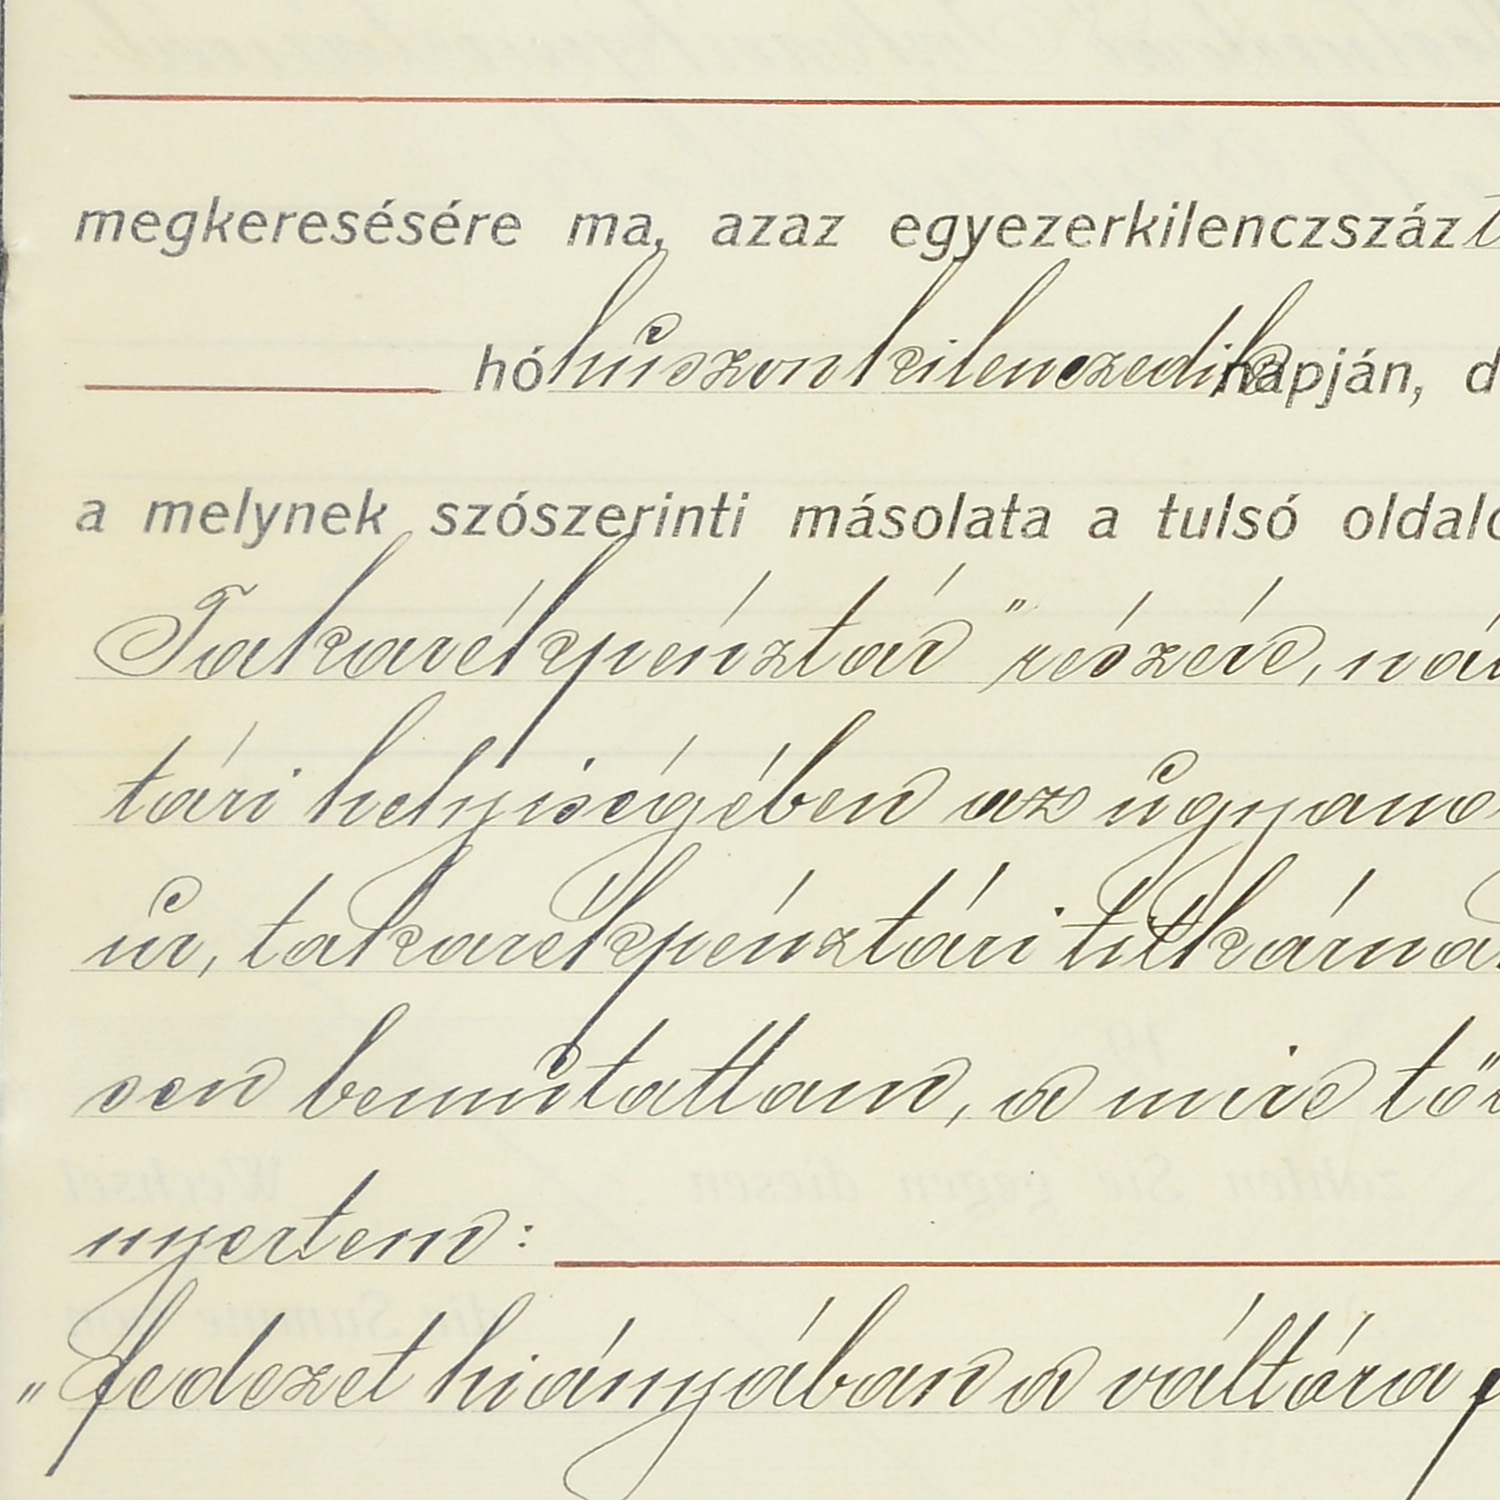 megkeresésére ma, azaz egyezerkilenczszáz
hó huszonkilenczedik napján,
a melynek szószerinti másolata a tulsó
Takarékpénztár" részére,
tári helyiségében az
úr, takarékpénztári
sen bemutattam, a mire
nyertem:
„fedezet hiányában a váltóra